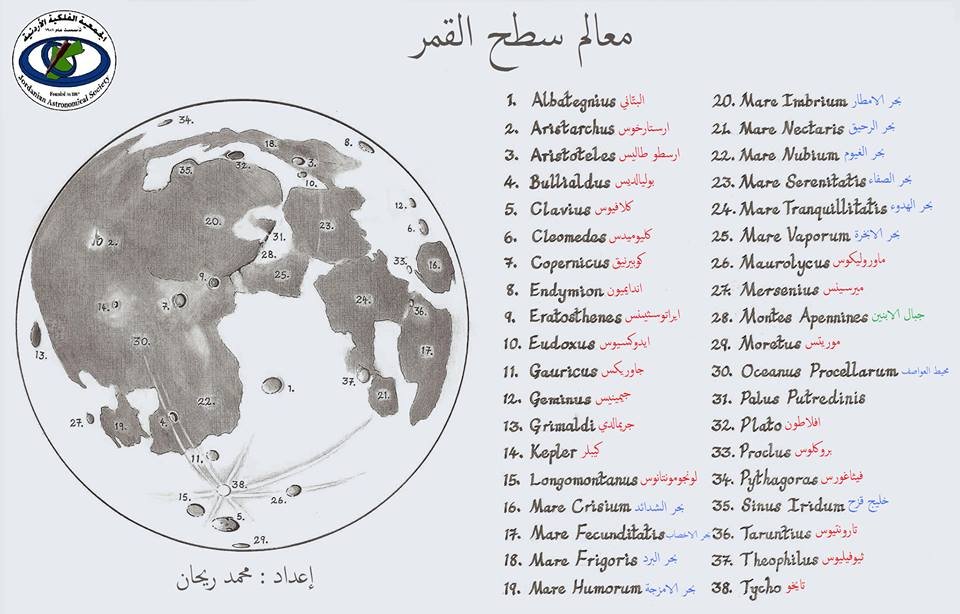 الجمعية الفلكية الأردنية
تأسست عام
Founded in
Jordanian Astronomical Society
معالم سطح القمر
1. Albategnius البتاني
2. Aristarchus ارستارخوس
3. Aristoteles ارسطو طاليس
4. Bullialdus بوليالديس
5. Clavius كلافيوس
6. Cleomedes كليوميدس
7. Copernicus كوبيرنيق
8. Endymion اندايميون
9. Eratosthenes ايراتوسثينس
10. Eudoxus ايدوكسيوس
11. Gauricus جاوريكس
12. Geminus جيمينيس
13. Grimaldi جريمالدي
14. Kepler كيبلر
15. Longomontanus لونجومونتانوس
16. Mare Crisium بحر الشدائد
17. Mare Fecunditatis بحر الاخصاب
18. Mare Frigoris بحر البرد
19. Mare Humorum بحر الامزجة
20. Mare Imbrium بحر الامطار
21. Mare Nectaris بحر الرحيق
22. Mare Nubium بحر الغيوم
23. Mare Serenitatis بحر الصفاء
24. Mare Tranquillitatis بحر الهدوء
25. Mare Vaporum بحر الابخرة
26. Maurolycus ماوروليكوس
27. Mersenius ميرسينس
28. Montes Apennines جبال الابنين
29. Moretus موريتس
30. Oceanus Procellarum محيط العواصف
31. Palus Putredinis
32. Plato افلاطون
33. Proclus بروكلوس
34. Pythagoras فيثاغورس
35. Sinus Iridum خليج قزح
36. Taruntius تارونتيوس
37. Theophilus ثيوفيليوس
38. Tycho تايخو
34.
18.
8.
32.
3.
35.
10.
12.
20.
23.
6.
2.
31.
28.
33.
16.
25.
9.
14.
7.
24.
36.
30.
13.
17.
37.
1.
21.
22.
27.
19.
4.
11.
38.
15.
26.
5.
29.
إعداد : محمد ريحان